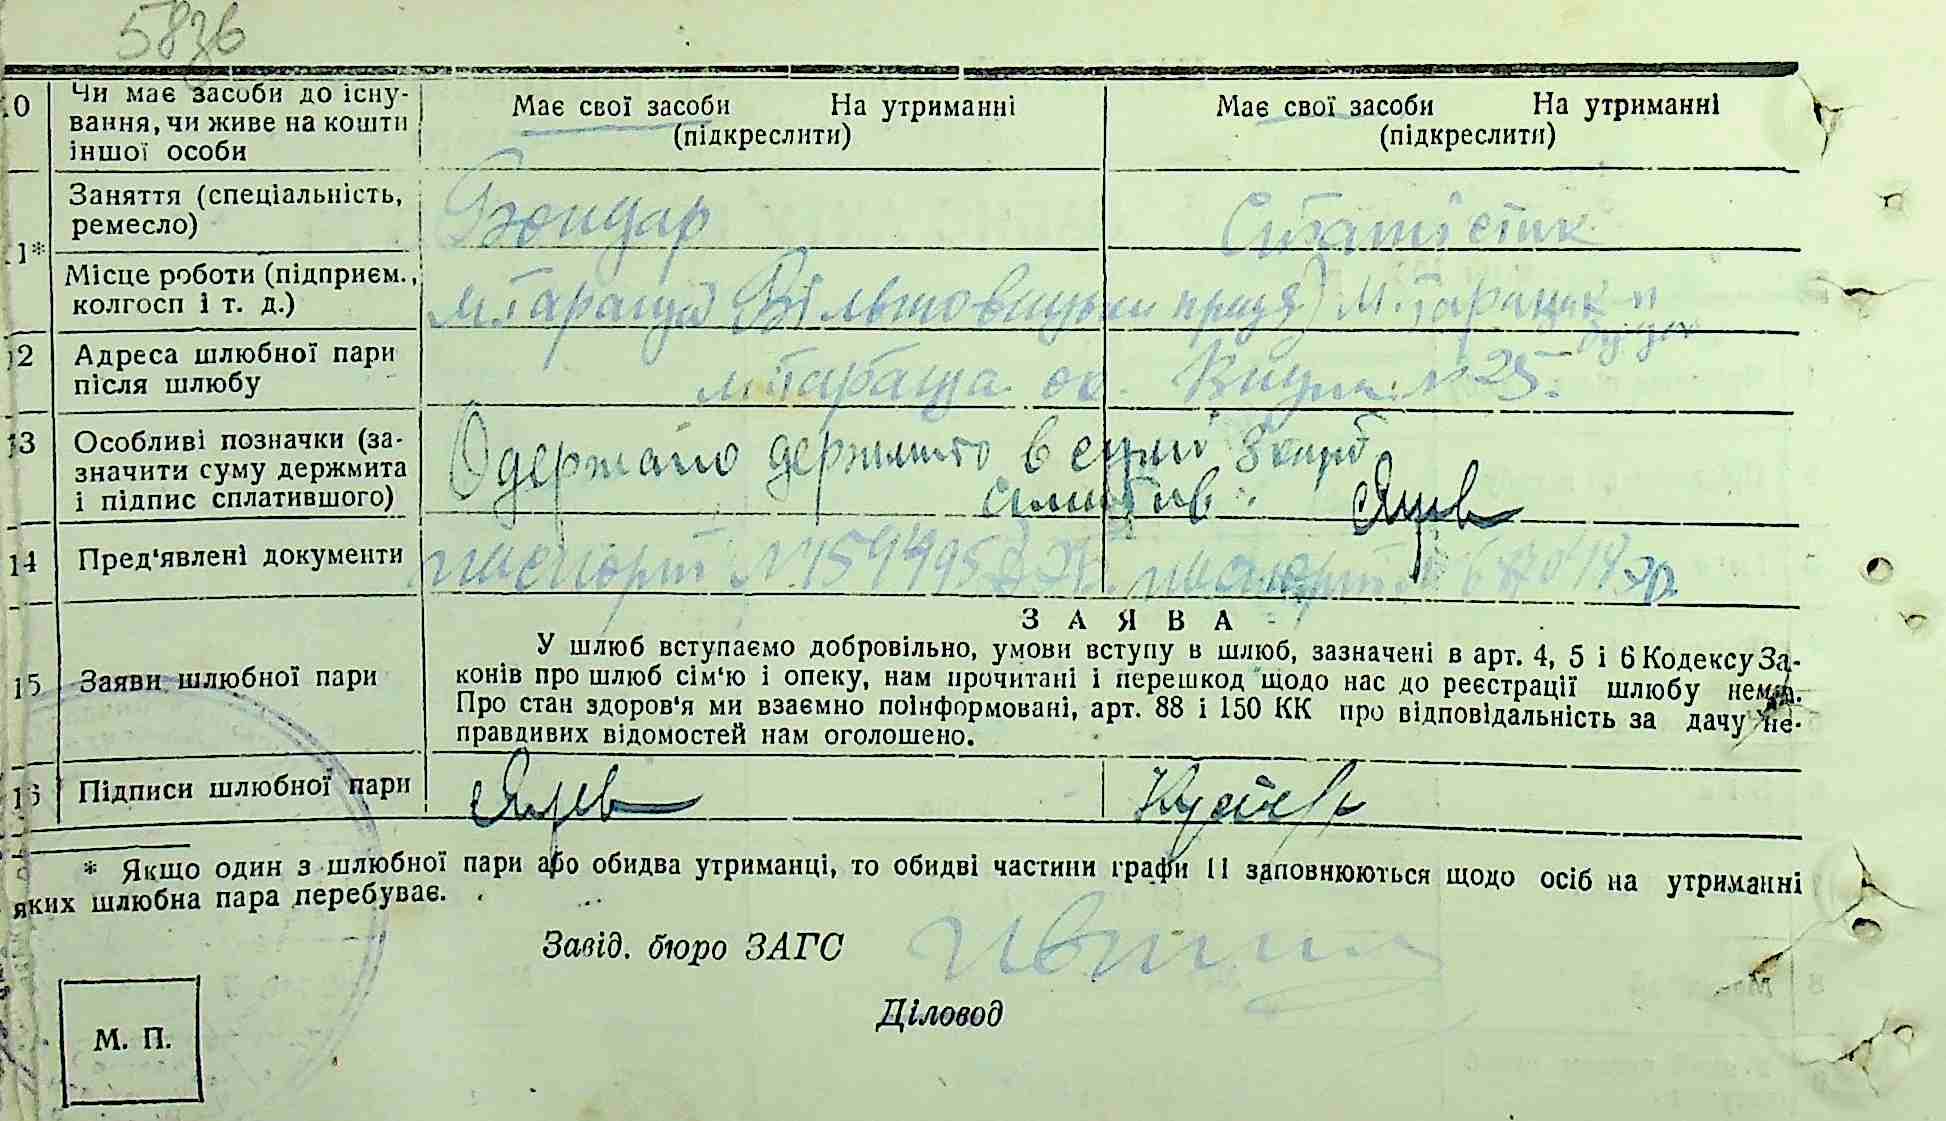 10 Чи має засоби до існу-
вання, чи живе на кошти
іншої особи
Має свої засоби На утриманні
(підкреслити)
Має свої засоби На утриманні
(підкреслити)
11* Заняття (спеціальність,
ремесло)
Бондар
Статистик
Місце роботи (підприєм.,
колгосп і т. д.)
м. Тараща
12 Адреса шлюбної пари
після шлюбу
м. Тараща № 25.
13 Особливі позначки (за-
значити суму держмита
і підпис сплатившого)
Одержано держмито в сумі 3 карб
сплатив:
14 Пред'явлені документи
паспорт № паспорт №
15 Заяви шлюбної пари
ЗАЯВА
У шлюб вступаємо добровільно, умови вступу в шлюб, зазначені в арт. 4, 5 і 6 Кодексу За-
конів про шлюб сім'ю і опеку, нам прочитані і перешкод щодо нас до реєстрації шлюбу нема.
Про стан здоров'я ми взаємно поінформовані, арт. 88 і 150 КК про відповідальність за дачу не-
правдивих відомостей нам оголошено.
16 Підписи шлюбної пари
* Якщо один з шлюбної пари або обидва утриманці, то обидві частини графи 11 заповнюються щодо осіб на утриманні
яких шлюбна пара перебуває.
Завід. бюро ЗАГС
Діловод
М. П.